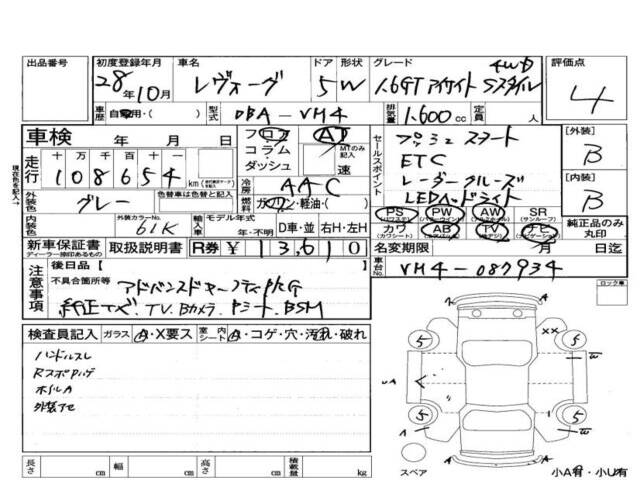 出品番号 初度登録年月 車名 ドア 形状 グレード 4WD 評価点
28年10月 レヴォーグ 5 W 1.6GT アイサイト Sスタイル 4
車歴 自家用・( ) 型式 DBA-VM4 排気量 1.600cc 定員 人
車検 年 月 日 フロア AT セールスポイント プッシュスタート [外装]
コラム MTのみ記入 ETC B
走行 十万 万 千 百 十 一 ダッシュ 速 レーダークルーズ [内装]
108654 km 冷房 AAC LEDヘッドライト B
外装色 グレー 燃料 ガソリン・軽油・( ) PS PW AW SR (サンルーフ)
内装色 外装カラーNo. 61K 輸入車 モデル年式 年・不明 D車・並 右H・左H カワ AB TV ナビ 純正品のみ丸印
新車保証書 ディーラー捺印あるもの 取扱説明書 R券 ¥13,610 名変期限 月 日迄
後日品[ ] 車台No. VM4-087934
注意事項 不具合箇所等 アドバンスドセーフティPKG ロック車
純正ナビ.TV.Bカメラ.Pシート.BSM
検査員記入 ガラス A・X要ス 室内シート A・コゲ・穴・汚れ・破れ
ハンドルスレ
RスポPハゲ
ホイルA
外装アセ
5 5 XX W
UA A
5 5 W
スペア
小A有・小U有
長さ cm 幅 cm 高さ cm 積載量 kg
現在色を記入→